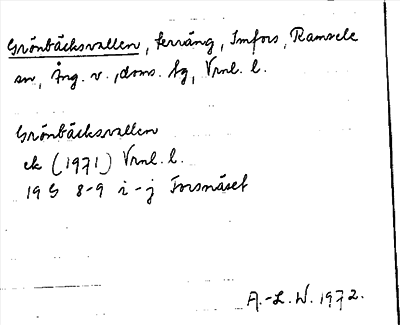 Grönbäcksvallen, terräng, Imfors, Ramsele
sn, Ång. v., doms. hg, Vrnl. l.
Grönbäcksvallen
ek (1971) Vrnl. l.
19 G 8-9 i-j Forsnäset
A.-L. W. 1972.